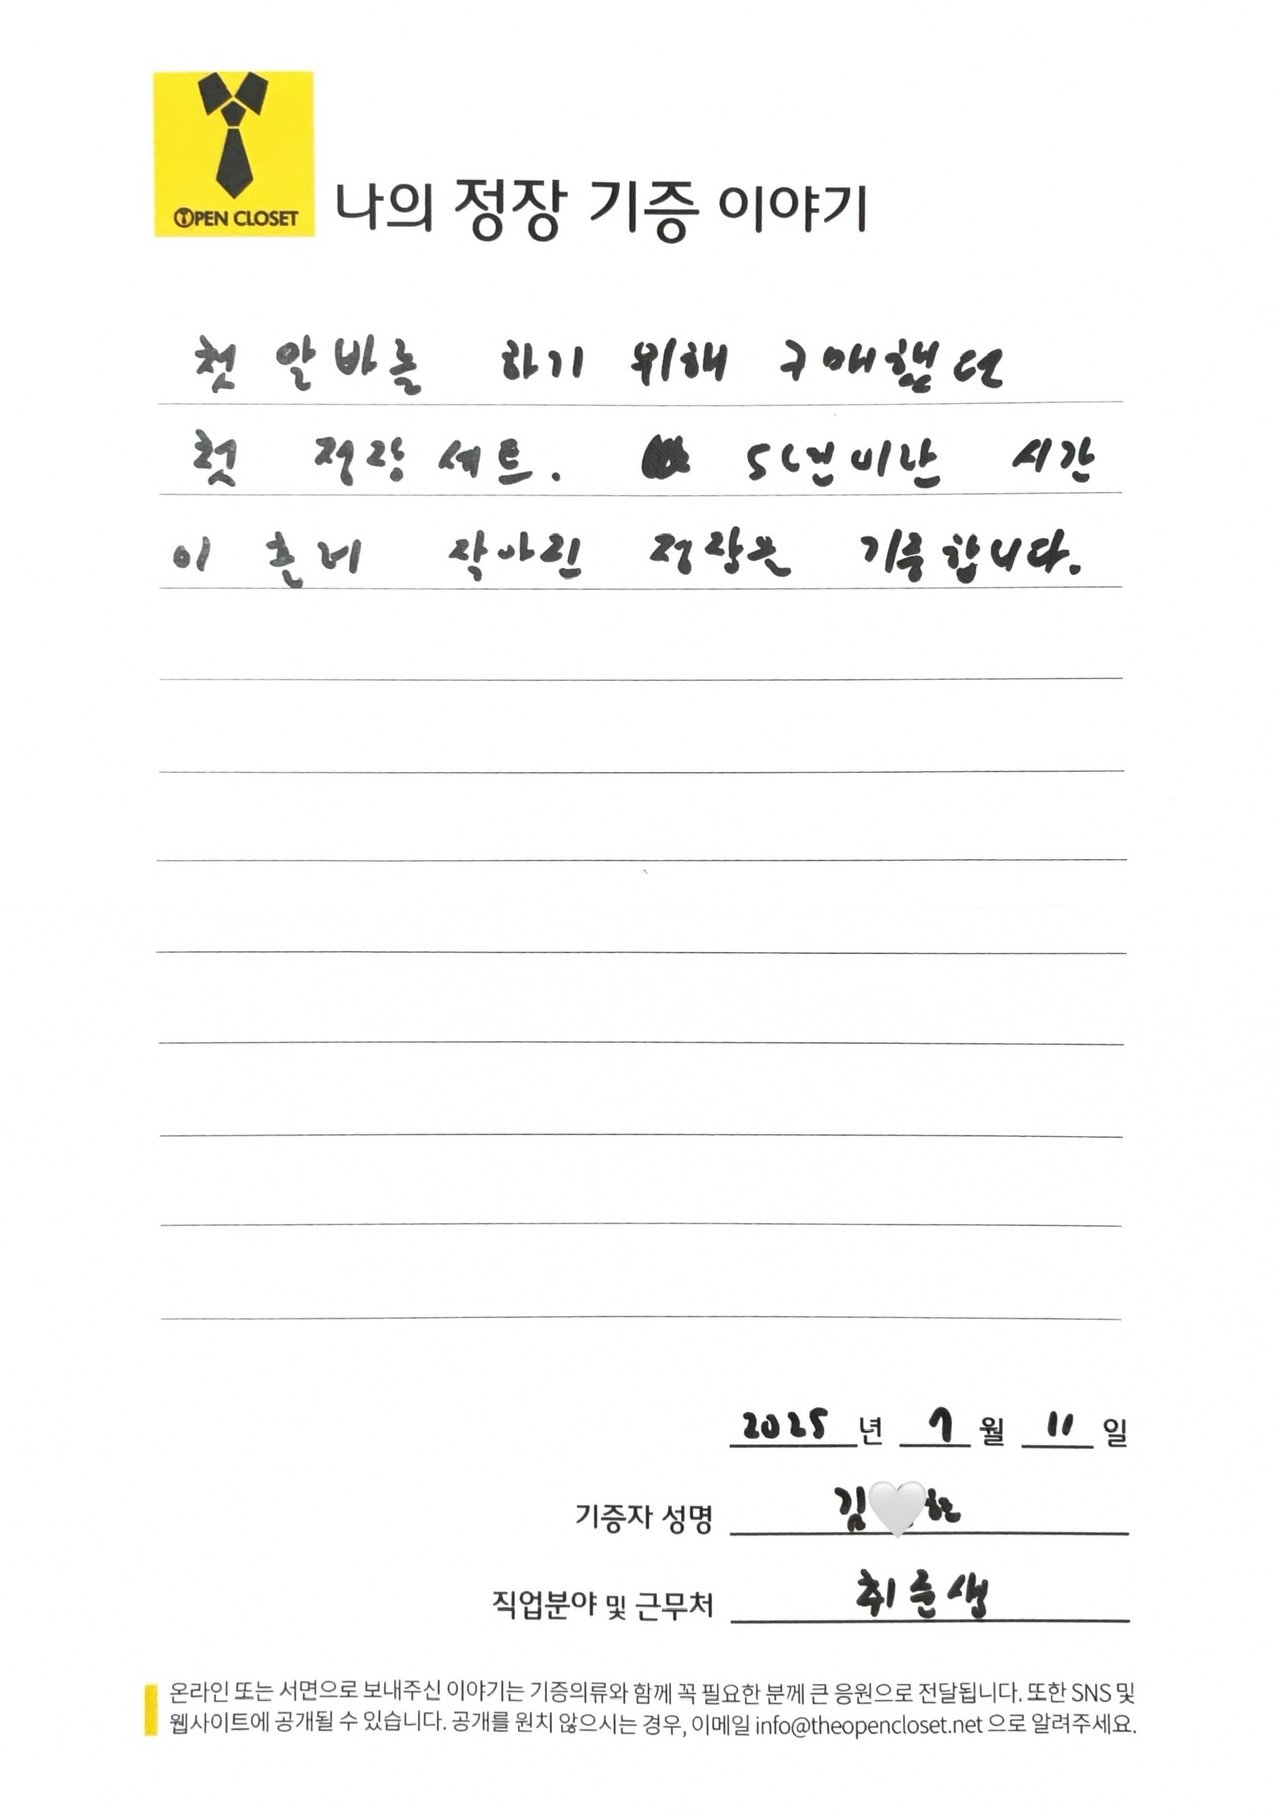 OPEN CLOSET
나의 정장 기증 이야기
첫 알바를 하기 위해 구매했던
첫 정장 세트. 5년이란 시간
이 흘러 작아린 정장은 기증합니다.
2025 년 7 월 11 일
기증자 성명 김
직업분야 및 근무처 취준생
온라인 또는 서면으로 보내주신 이야기는 기증의류와 함께 꼭 필요한 분께 큰 응원으로 전달됩니다. 또한 SNS 및
웹사이트에 공개될 수 있습니다. 공개를 원치 않으시는 경우, 이메일 info@theopencloset.net 으로 알려주세요.